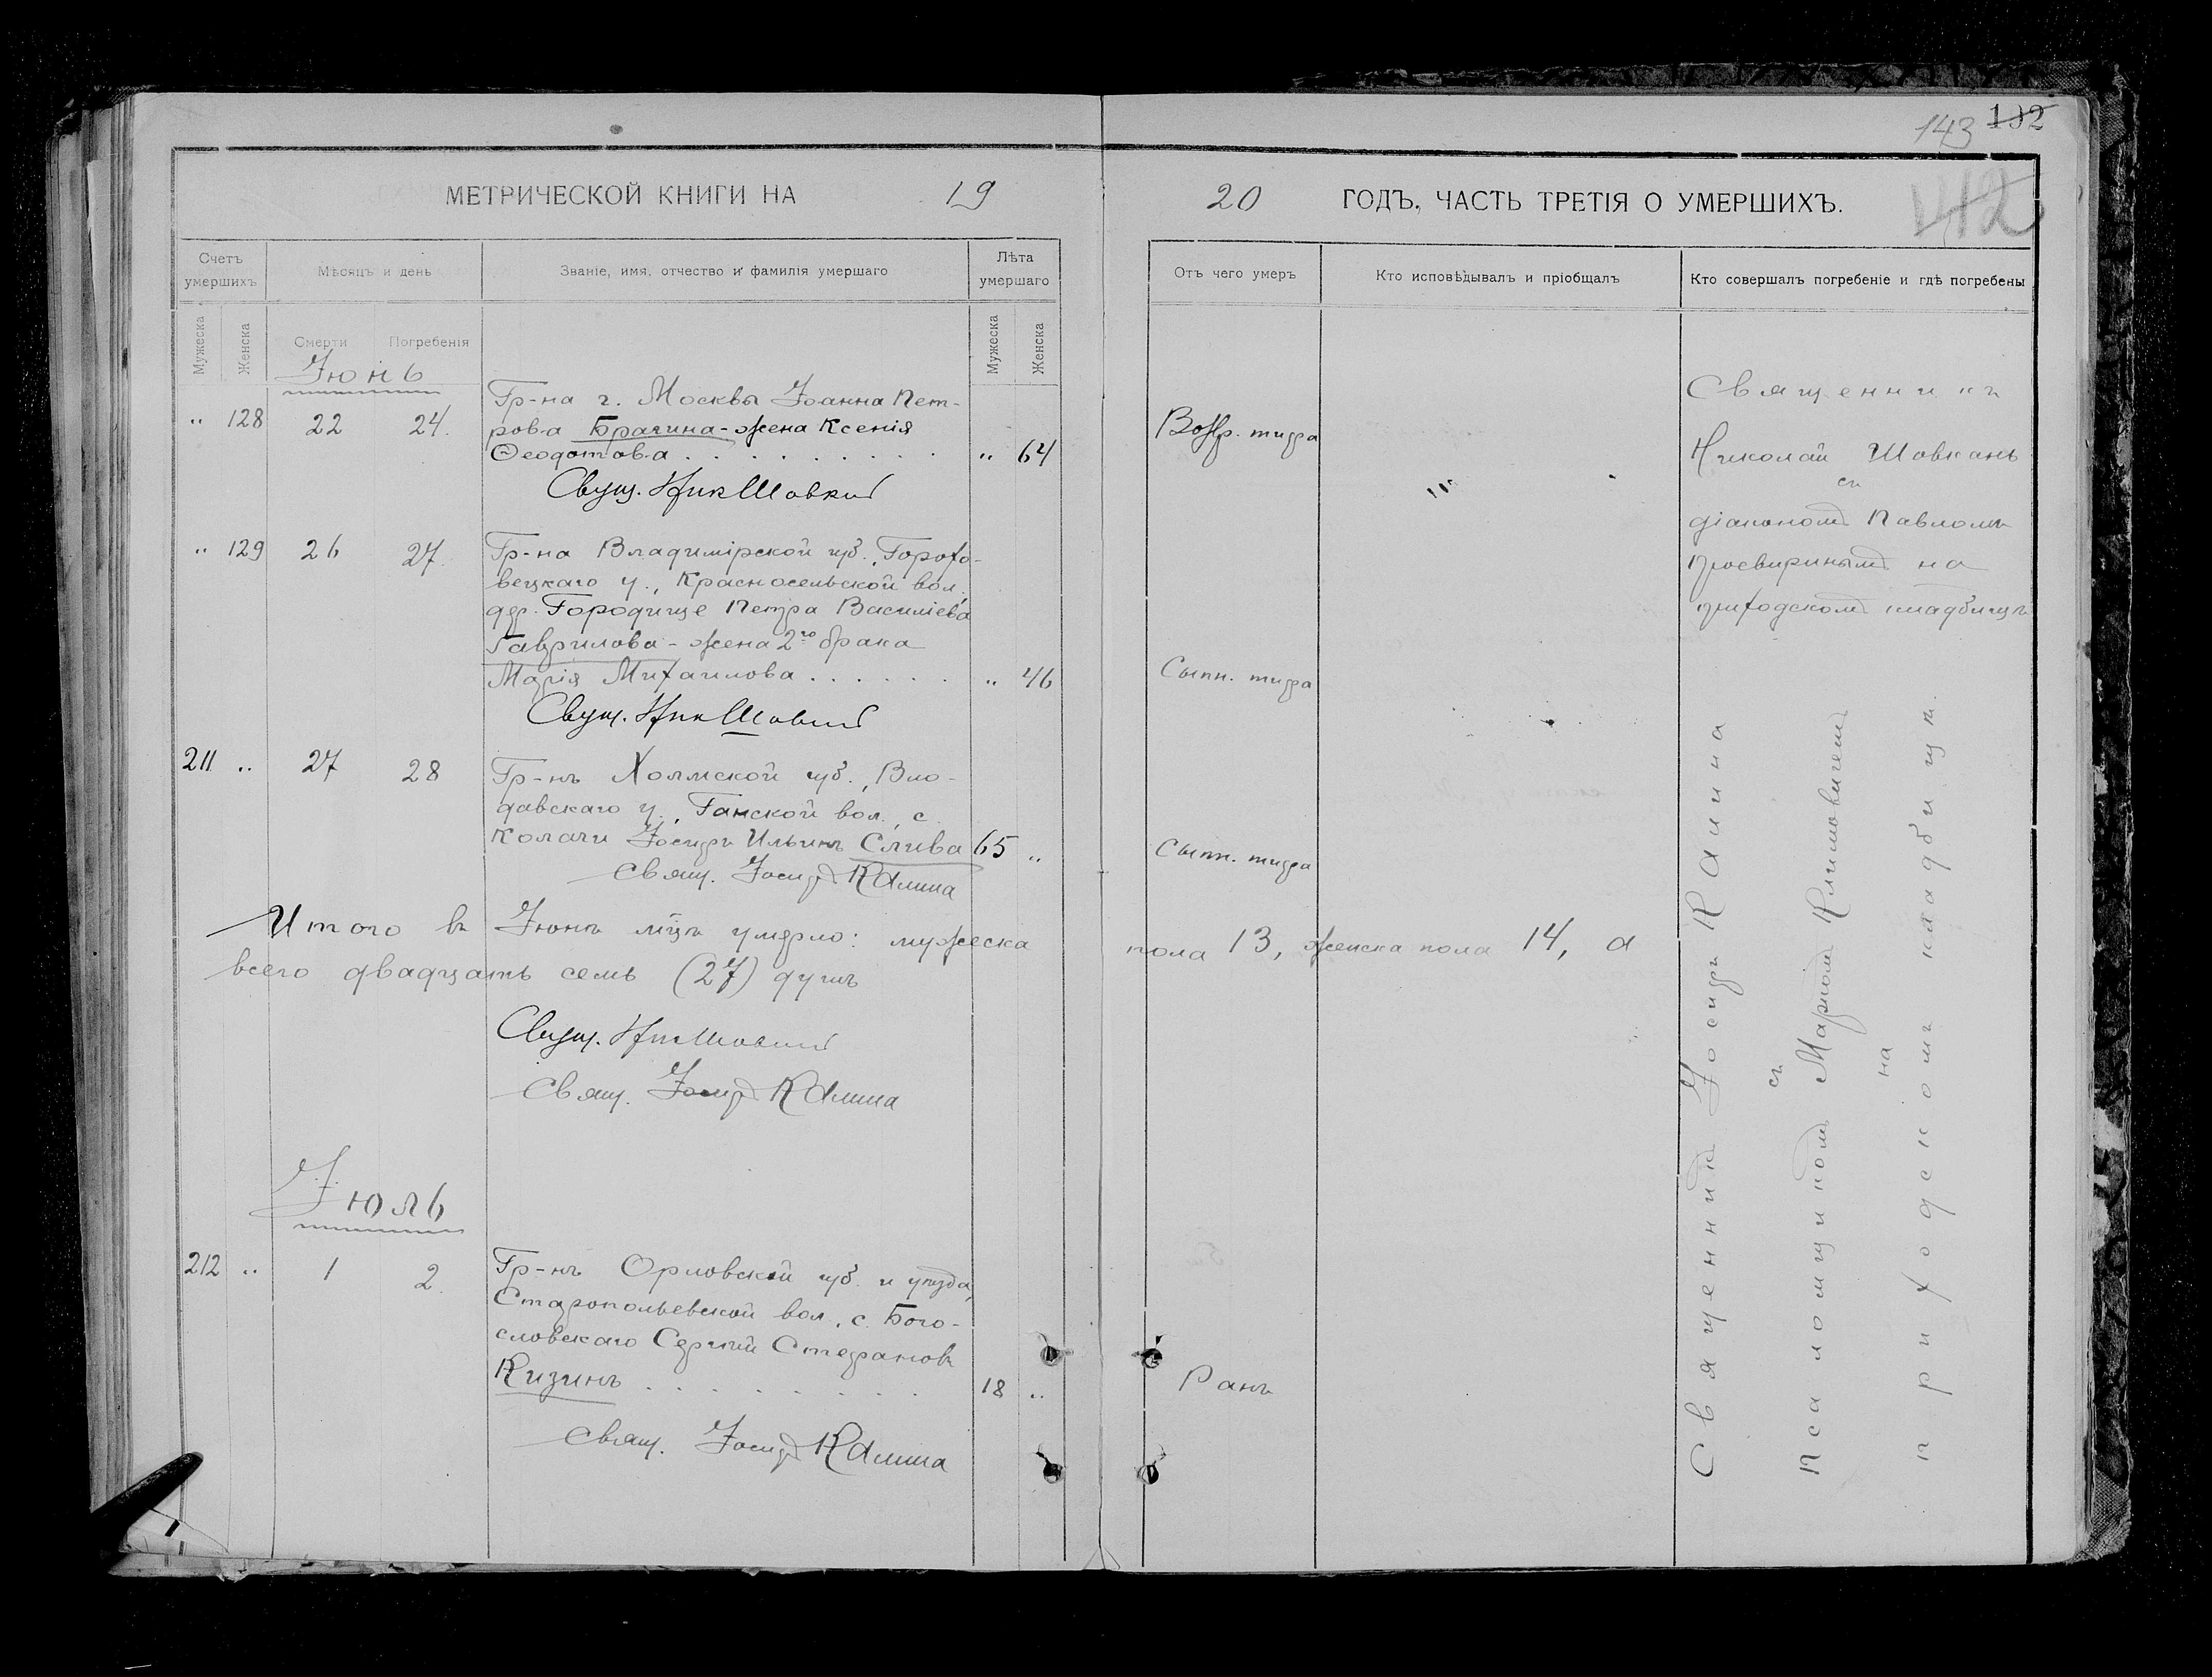 143 192
142
МЕТРИЧЕСКОЙ КНИГИ НА 19
20 ГОДЪ, ЧАСТЬ ТРЕТІЯ О УМЕРШИХЪ.
Счетъ умершихъ
Мѣсяцъ и день
Званіе, имя, отчество и фамилія умершаго
Лѣта умершаго
Мужеска
Женска
Смерти
Погребенія
Мужеска
Женска
Отъ чего умеръ
Кто исповѣдывалъ и пріобщалъ
Кто совершалъ погребеніе и гдѣ погребены
Іюнь
" 128 22 24.
Гр-на г. Москвы Іоанна Пет-
ров-а Брагина - жена Ксенія
Ѳеодотов-а . . . . . . . . . " 64
Возвр. тифа
Свящ. Ник Шовкан
" 129 26 27.
Гр-на Владимірской губ., Горохо-
вецкаго у., Красносельской вол.,
дер. Городище Петра Василіева
Гаврилова - жена 2го брака
Марія Михаилова . . . . . . " 46
Сыпн. тифа
Свящ. Ник Шовкан
211 " 27 28
Гр-нъ Холмской губ., Вло-
давскаго у., Ганской вол., с.
Колачи Іосифъ Ильинъ Слива 65 "
Сыпн. тифа
Свящ. Іосиф Калина
Итого въ Іюнѣ м-цѣ умерло: мужеска
пола 13, женска пола 14, а
всего двадцать семь (27) душъ
Свящ. Ник Шовкан
Свящ. Іосиф Калина
Іюль
212 " 1 2.
Гр-нъ Орловской губ. и уѣзда,
Старопольевской вол., с. Бого-
словскаго Сергѣй Стефановъ
Кизинъ . . . . . . . . . 18 "
Ранъ
Свящ. Іосиф Калина
Священникъ
Николай Шовканъ
съ
діакономъ Павломъ
Просвиринымъ на
приходскомъ кладбищѣ
Священникъ Іосифъ Калина
съ
Псаломщикомъ Маркомъ Климовичемъ
на
приходскомъ кладбищѣ